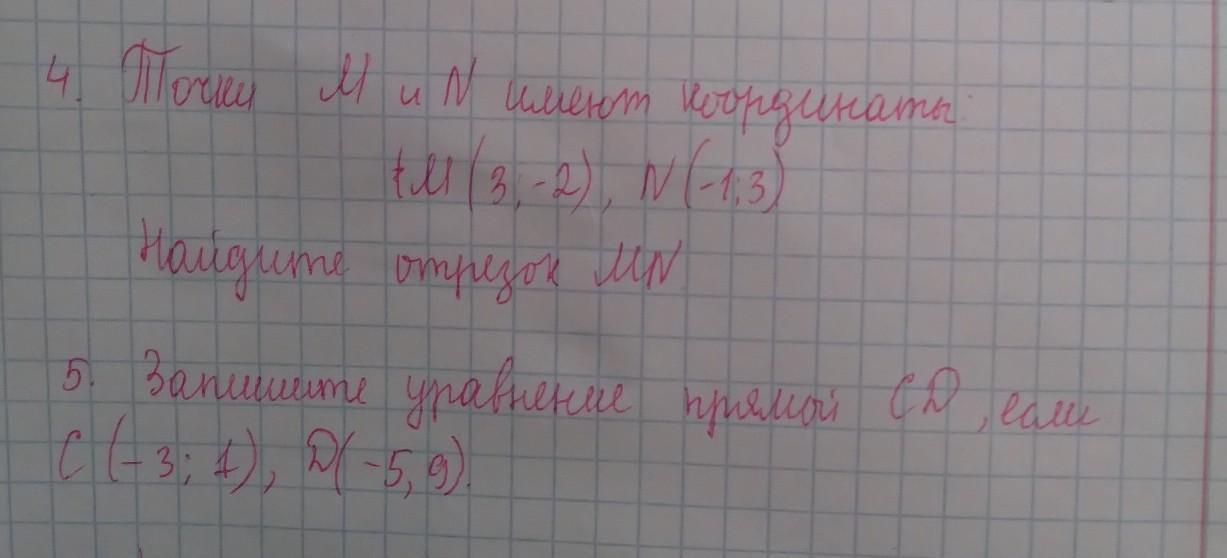 4. Точки М и N имеют координаты:
М(3;-2), N(-1;3)
Найдите отрезок MN
5. Запишите уравнение прямой CD, если
C(-3; 1), D(-5, 9).